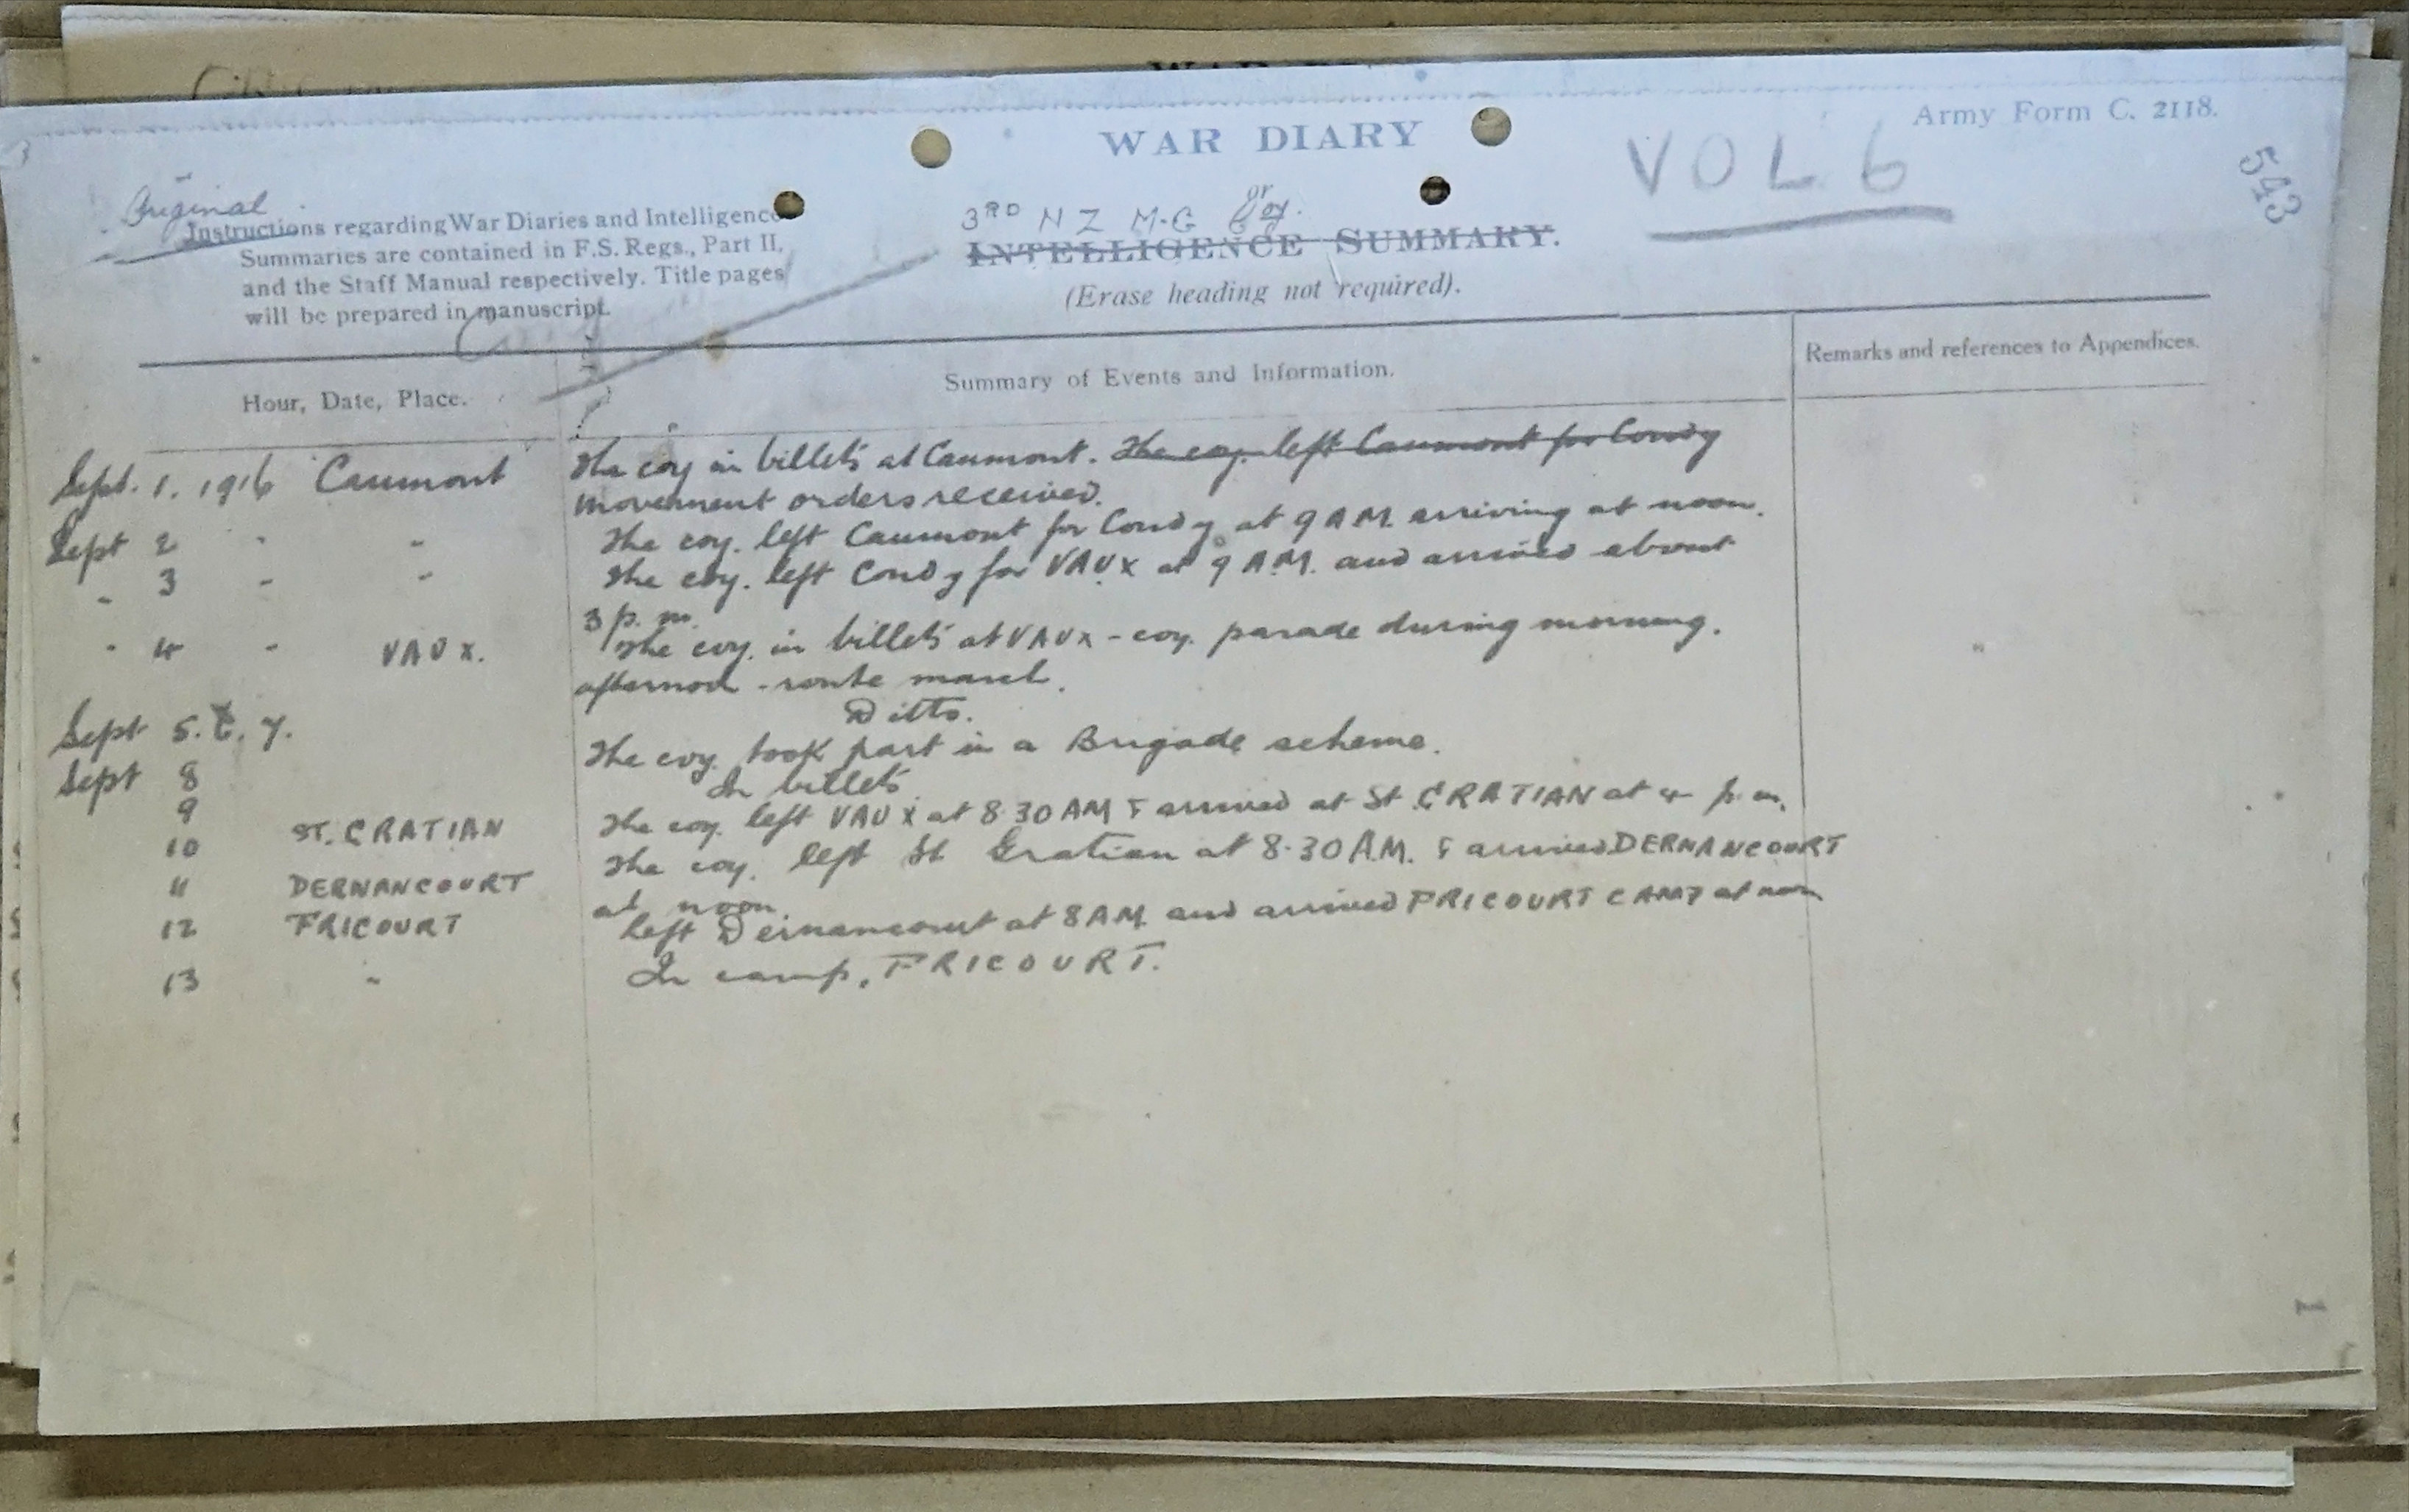 WAR DIARY
Army Form C. 2118.
VOL 6
543
Original
Instructions regarding War Diaries and Intelligence
Summaries are contained in F.S. Regs., Part II,
and the Staff Manual respectively. Title pages
will be prepared in manuscript.
or
3RD NZ M.G Coy.
INTELLIGENCE SUMMARY.
(Erase heading not required).
Hour, Date, Place.
Summary of Events and Information.
Remarks and references to Appendices.
Sept. 1. 1916 Caumont The coy in billets at Caumont. The coy. left Caumont for Condy
movement orders received.
Sept 2 " " The coy. left Caumont for Condy at 9 A.M. arriving at noon.
" 3 " " The coy. left Condy for VAUX at 9 A.M. and arrived about
3 p.m.
" 4 " VAUX. The coy. in billets at VAUX - coy. parade during morning.
afternoon - route march.
Sept 5. 6. 7. Ditto.
Sept 8 The coy. took part in a Brigade scheme.
9 In billets
10 ST. GRATIAN The coy. left VAUX at 8.30 AM & arrived at St GRATIAN at 4 p.m.
11 DERNANCOURT The coy. left St Gratian at 8.30 A.M. & arrived DERNANCOURT
at noon.
12 FRICOURT left Dernancourt at 8 AM and arrived FRICOURT CAMP at noon
13 " In camp, FRICOURT.
1